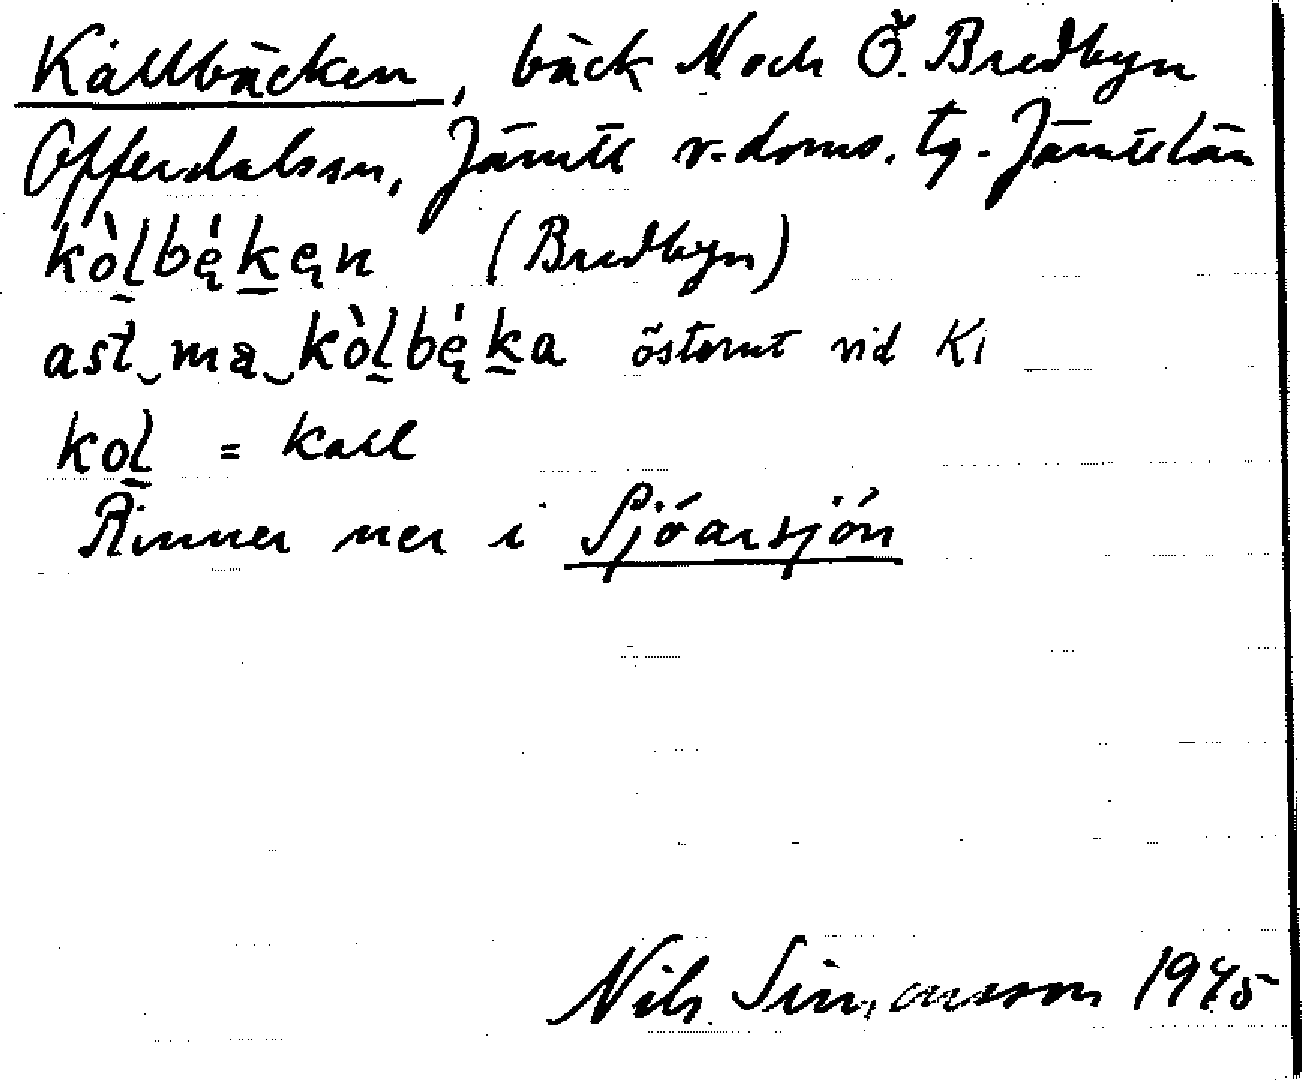 Kallbäcken, bäck N och Ö. Bredbyn
Offerdals sn, Jämtl v. doms. tg. Jämtl län
kòl̠bę́k̠ęn (Bredbyn)
ast‿ma‿kòl̠bę́k̠a österut vid Kl
kol̠ = kall
Rinner ner i Sjöarsjön
Nils Simonsson 1945